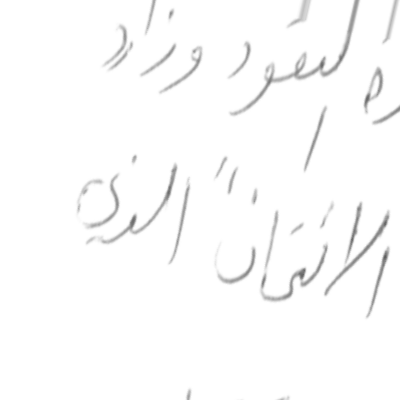 النقود وزاد
الائتمان الذي